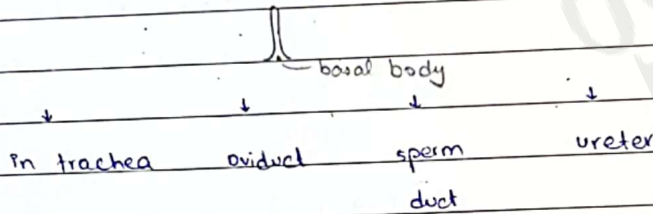 basal body
↓ ↓ ↓ ↓
in trachea oviduct sperm ureter
duct